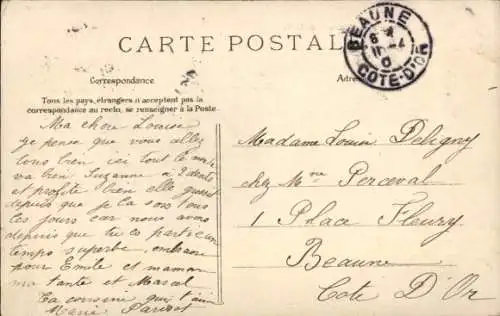 CARTE POSTALE
BEAUNE
COTE-D'OR
Correspondance
Adre
Tous les pays, étrangers n'acceptent pas la
correspondance au recto, se renseigner à la Poste
Ma chère Louise
je pense que vous allez
tous bien ici tout le m
va bien Suzanne a 2 dents
et profite bien elle
depuis que je la sors tous
les jours car nous avons
depuis que tu es partie un
temps superbe. embrasse
pour Emile et maman
ma tante et Marcel
ta cousine qui t'aime
Marie Parizot
Madame Louis Deligny
chez Mme Perceval
1 Place Fleury
Beaune
Cote D'Or